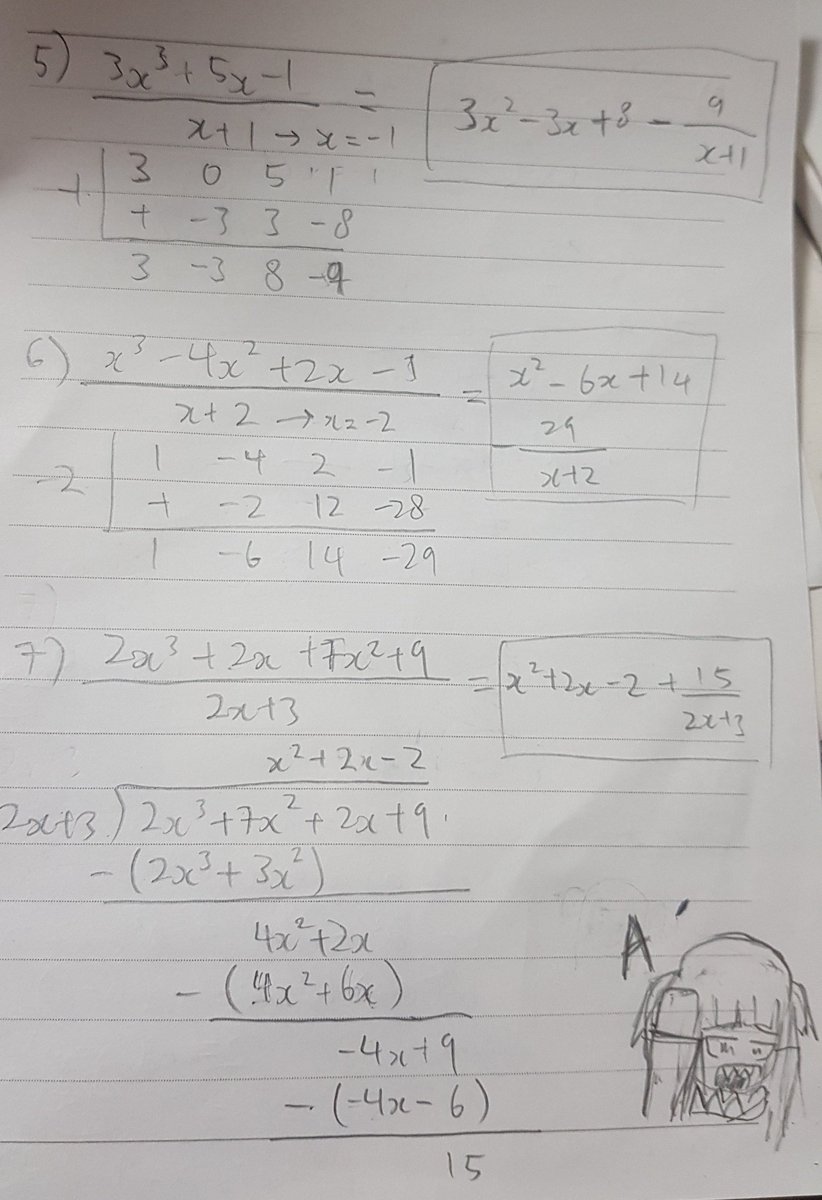 5) 3x³+5x-1 = 3x²-3x+8 - 9
x+1 → x=-1 x+1
3 0 5 -1
+ -3 3 -8
3 -3 8 -9
6) x³-4x²+2x-1 = x²-6x+14
x+2 → x=-2 - 29
x+2
-2 1 -4 2 -1
+ -2 12 -28
1 -6 14 -29
7) 2x³+2x+7x²+9 = x²+2x-2 + 15
2x+3 2x+3
x²+2x-2
2x+3 ) 2x³+7x²+2x+9
-(2x³+3x²)
4x²+2x
-(4x²+6x)
-4x+9
-(-4x-6)
15
A